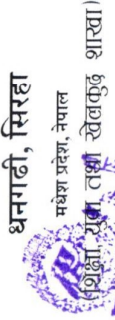 धनगढी, सिरहा
मधेश प्रदेश, नेपाल
(शिक्षा युवा तथा खेलकुद शाखा)